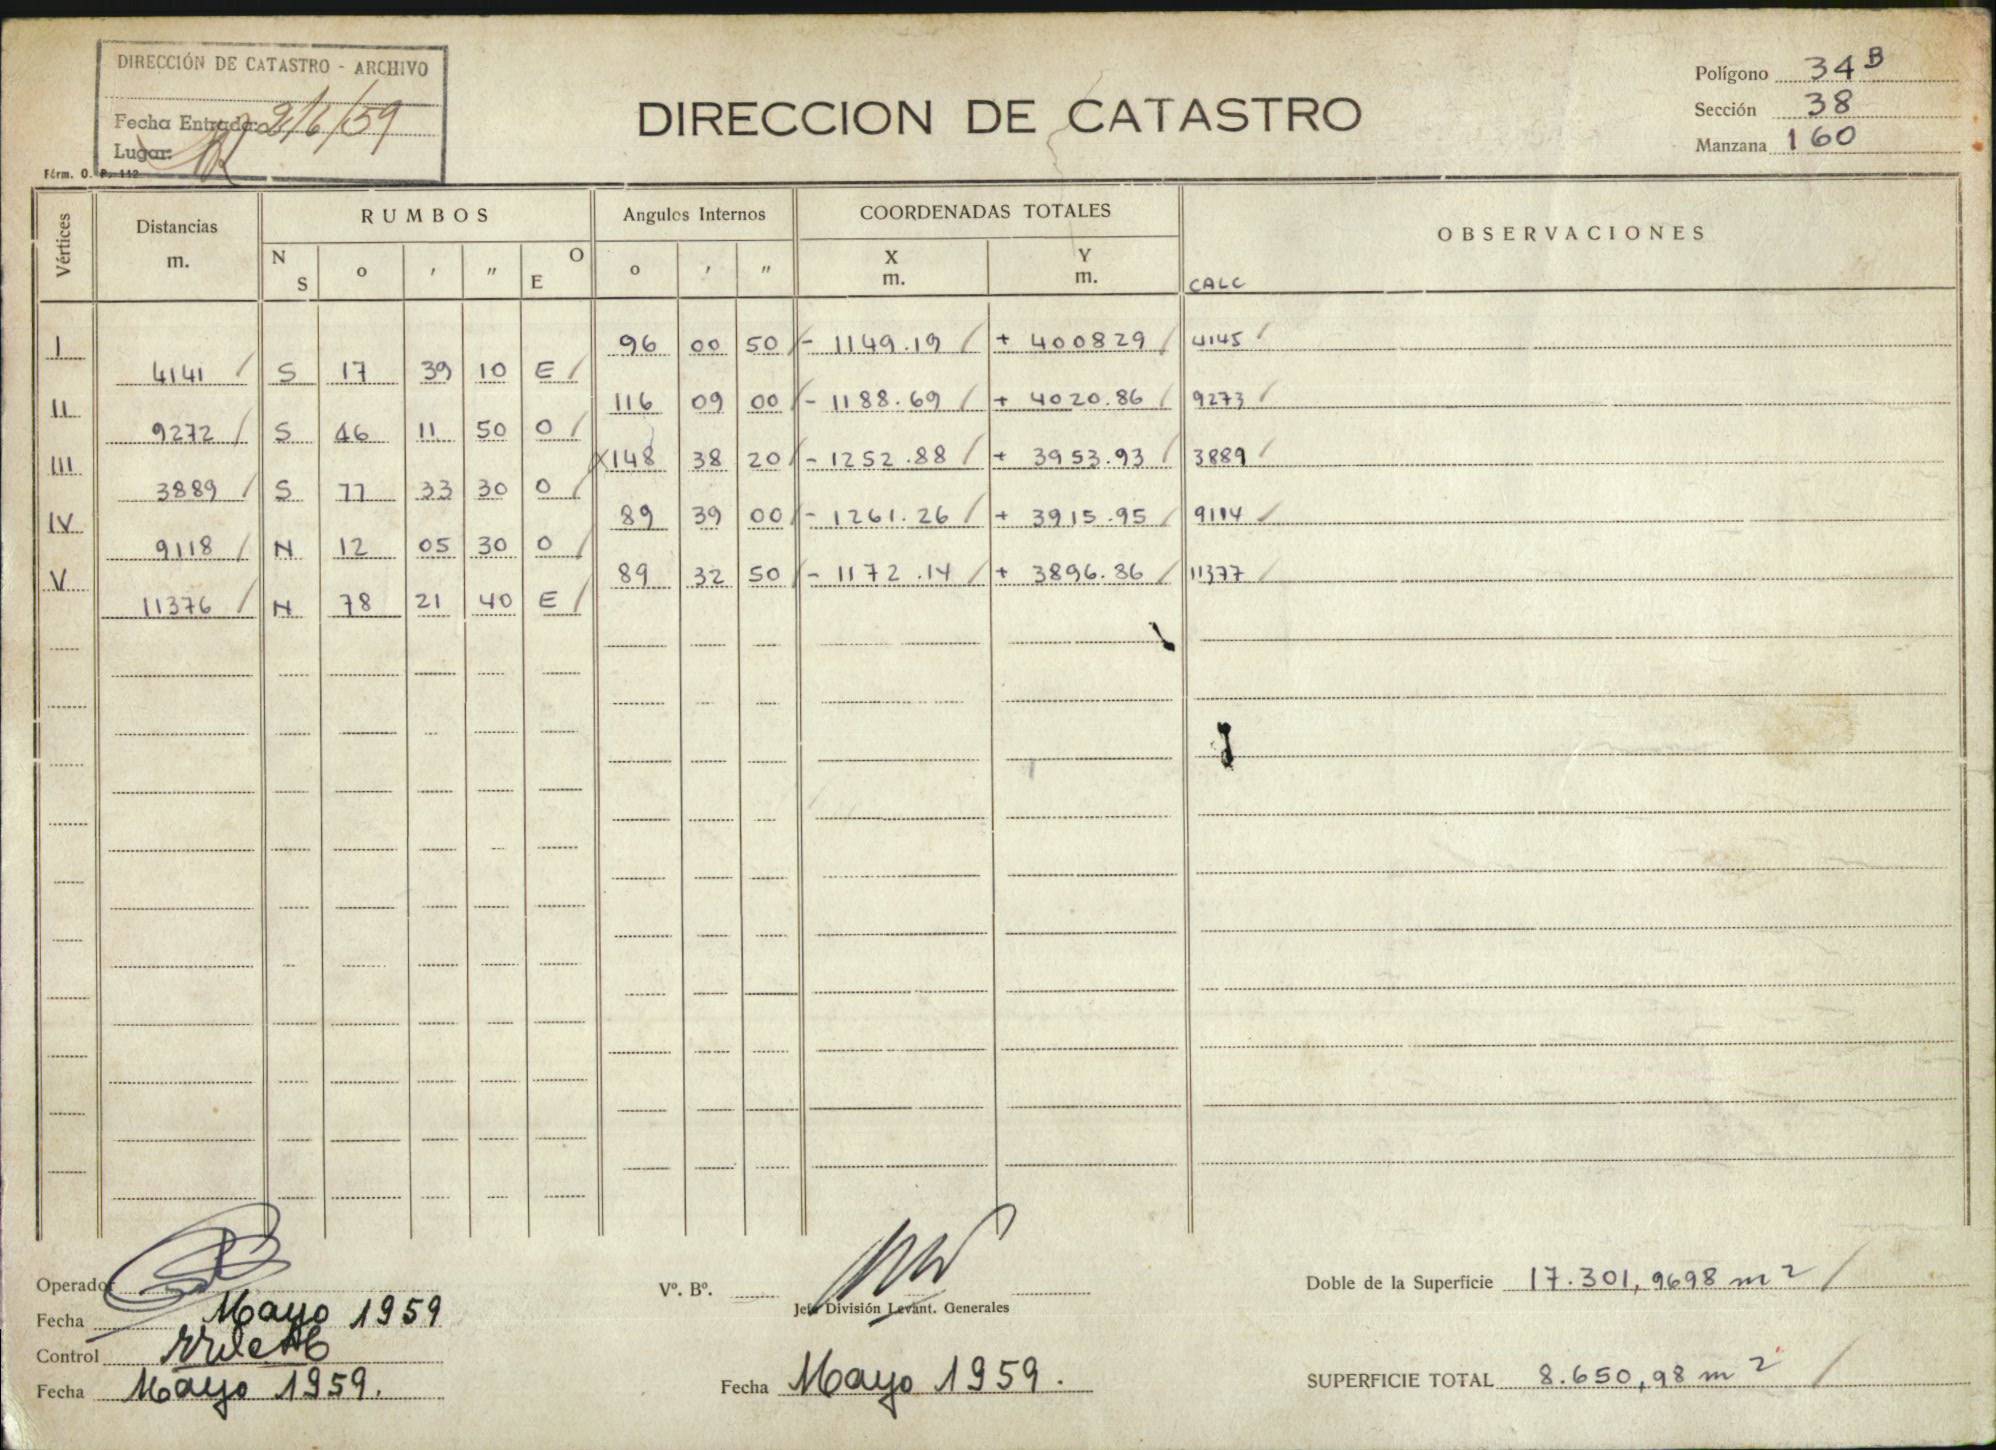 DIRECCIÓN DE CATASTRO - ARCHIVO
Fecha Entrada: 2/6/59
Lugar:
Fórm. O. P. 112
DIRECCION DE CATASTRO
Polígono 34 B
Sección 38
Manzana 160
Vértices Distancias m. RUMBOS Angulos Internos COORDENADAS TOTALES OBSERVACIONES
N S o ' " O E o ' " X m. Y m. CALC
I 96 00 50 - 1149.19 + 400829 4145
4141 S 17 39 10 E
II 116 09 00 - 1188.69 + 4020.86 9273
9272 S 46 11 50 O
III X 148 38 20 - 1252.88 + 3953.93 3889
3889 S 77 33 30 O
IV 89 39 00 - 1261.26 + 3915.95 9114
9118 N 12 05 30 O
V 89 32 50 - 1172.14 + 3896.86 11377
11376 N 78 21 40 E
Operador
Fecha Mayo 1959
Control
Fecha Mayo 1959.
Vº. Bº.
Jefe División Levant. Generales
Fecha Mayo 1959.
Doble de la Superficie 17.301,9698 m2
SUPERFICIE TOTAL 8.650,98 m2